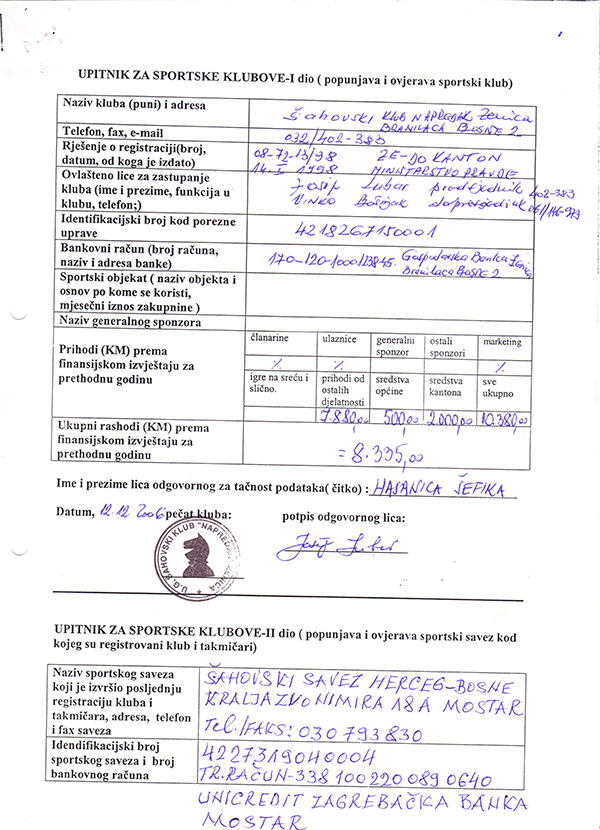 UPITNIK ZA SPORTSKE KLUBOVE-I dio ( popunjava i ovjerava sportski klub)
Naziv kluba (puni) i adresa
Šahovski KLUB NAPREDAK Zenica
BRANILACA BOSNE 2
Telefon, fax, e-mail
032/402-383
Rješenje o registraciji(broj,
datum, od koga je izdato)
08-72-13/98 ZE-DO KANTON
14. I 1998 MINISTARSTVO PRAVDE
Ovlašteno lice za zastupanje
kluba (ime i prezime, funkcija u
klubu, telefon;)
Josip Lubar predsjednik 402-383
Vinko Bošnjak dopredsjednik 061/146-973
Identifikacijski broj kod porezne
uprave
4218267150001
Bankovni račun (broj računa,
naziv i adresa banke)
Gospodarska Banka Zenica
Branilaca Bosne 2
Sportski objekat ( naziv objekta i
osnov po kome se koristi,
mjesečni iznos zakupnine )
Naziv generalnog sponzora
Prihodi (KM) prema
finansijskom izvještaju za
prethodnu godinu
članarine ulaznice generalni sponzor ostali sponzori marketing
% % %
igre na sreću i slično. prihodi od ostalih djelatnosti sredstva općine sredstva kantona sve ukupno
7.880,00 500,00 2.000,00 10.380,00
Ukupni rashodi (KM) prema
finansijskom izvještaju za
prethodnu godinu
= 8.335,00
Ime i prezime lica odgovornog za tačnost podataka( čitko) : HASANICA ŠEFIKA
Datum, 12.12 2006 pečat kluba: potpis odgovornog lica:
U.G. ŠAHOVSKI KLUB "NAPREDAK" ZENICA
UPITNIK ZA SPORTSKE KLUBOVE-II dio ( popunjava i ovjerava sportski savez kod
kojeg su registrovani klub i takmičari)
Naziv sportskog saveza
koji je izvršio posljednju
registraciju kluba i
takmičara, adresa, telefon
i fax saveza
ŠAHOVSKI SAVEZ HERCEG-BOSNE
KRALJA ZVONIMIRA 18A MOSTAR
Tel./FAKS: 030 793 830
Idendifikacijski broj
sportskog saveza i broj
bankovnog računa
4227319040004
TR.RAČUN-338 100 220 089 0640
UNICREDIT ZAGREBAČKA BANKA
MOSTAR